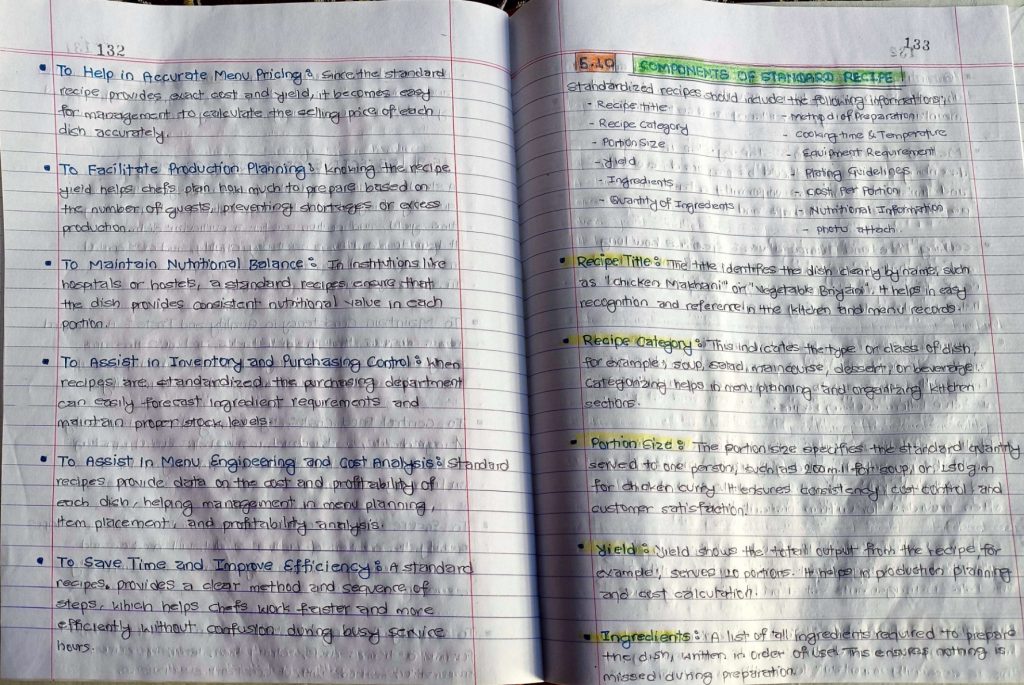 132
• To Help in Accurate Menu Pricing: Since the standard
recipe provides exact cost and yield, it becomes easy
for management to calculate the selling price of each
dish accurately.
• To Facilitate Production Planning: knowing the recipe
yield helps chefs plan how much to prepare based on
the number of guests, preventing shortages or excess
production.
• To Maintain Nutritional Balance: In institutions like
hospitals or hostels, a standard, recipes ensure that
the dish provides consistent nutritional value in each
portion.
• To Assist in Inventory and Purchasing Control: When
recipes are standardized, the purchasing department
can easily forecast ingredient requirements and
maintain proper stock levels.
• To Assist in Menu Engineering and Cost Analysis: Standard
recipes provide data on the cost and profitability of
each dish, helping management in menu planning,
item placement, and profitability analysis.
• To Save Time and Improve Efficiency: A standard
recipes, provides a clear method and sequence of
steps, which helps chefs work faster and more
efficiently without confusion during busy service
hours.
133
5.10 COMPONENTS OF STANDARD RECIPE
Standardized recipes should include the following informations:
- Recipe title
- Recipe Category
- Portion Size
- Yield
- Ingredients
- Quantity of Ingredents
- Method of Preparation
- Cooking time & Temperature
- Equipment Requirement
- Plating Guidelines
- Cost Per Portion
- Nutritional Information
- photo attach
• Recipe Title: The title identifies the dish clearly by name, such
as "Chicken Makhani" or "Vegetable Briyani". It helps in easy
recognition and reference in the kitchen and menu records.
• Recipe Category: This indicates the type or class of dish,
for example, soup, salad, main course, dessert, or beverage.
Categorizing helps in menu planning and organizing kitchen
sections.
• Portion Size: The portion size specifies the standard quantity
served to one person, such as 200ml for soup, or 150gm
for chicken curry. It ensures consistency, cost control, and
customer satisfaction.
• Yield: Yield shows the total output from the recipe for
example, serves 10 portions. It helps in production planning
and cost calculation.
• Ingredients: A list of all ingredients required to prepare
the dish, written in order of use. This ensures nothing is
missed during preparation.